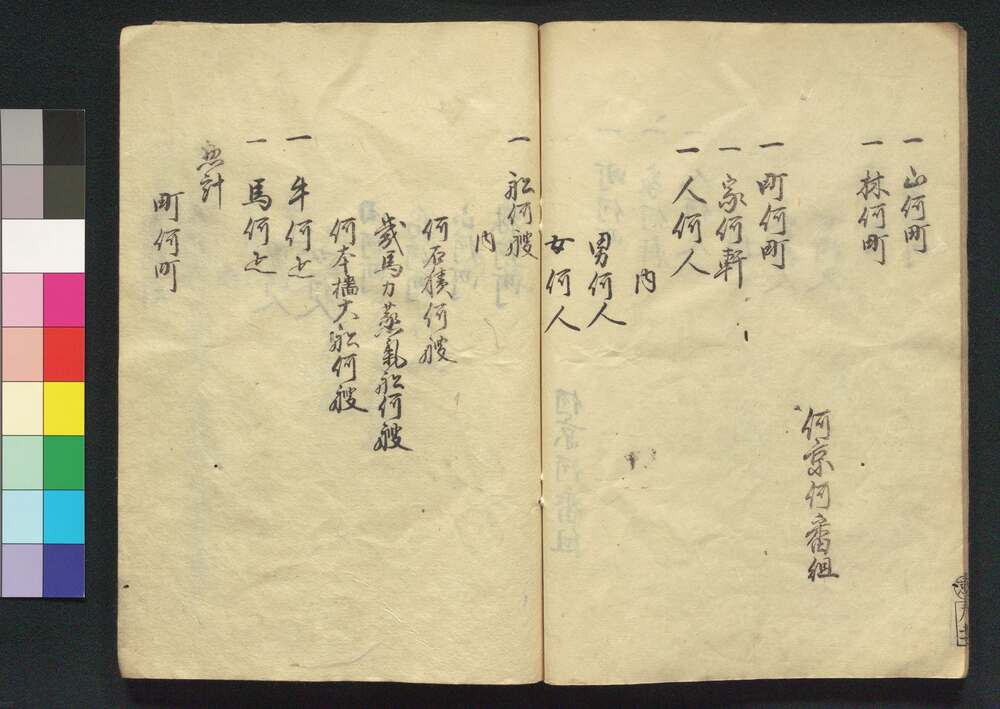 一山何町
一林何町
何京何番組
一町何町
一家何軒
一人何人
内
男何人
女何人
一船何艘
内
何石積何艘
幾馬力蒸氣船何艘
何本檣大船何艘
一牛何疋
一馬何疋
惣計
町何町